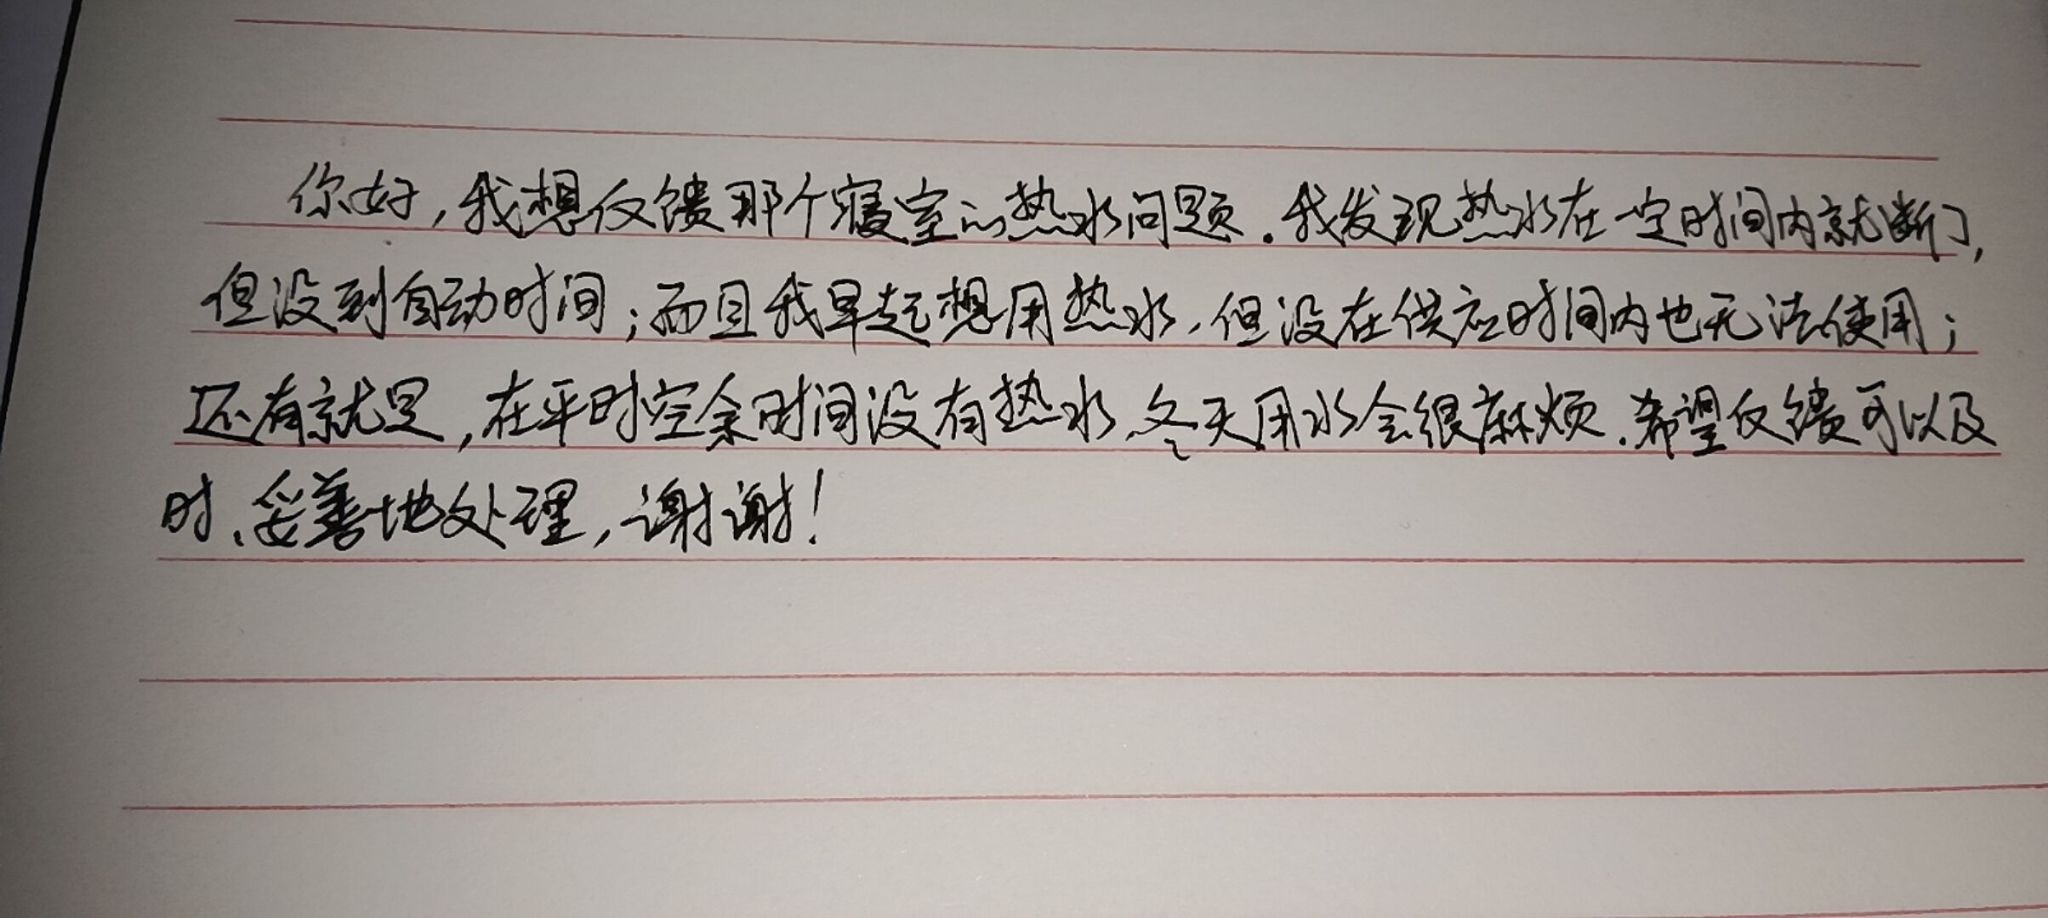 你好,我想反馈那个寝室的热水问题.我发现热水在一定时间内就断了,
但没到自动时间;而且我早起想用热水,但没在供应时间内也无法使用;
还有就是,在平时空余时间没有热水,冬天用水会很麻烦.希望反馈可以及
时、妥善地处理,谢谢!